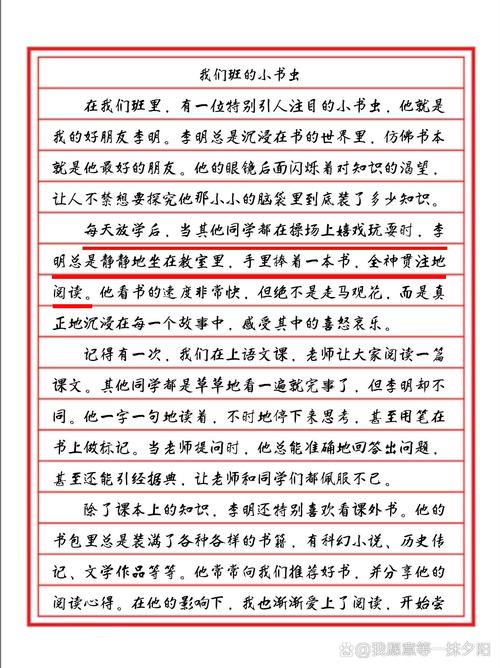 我们班的小书虫
在我们班里，有一位特别引人注目的小书虫，他就是
我的好朋友李明。李明总是沉浸在书的世界里，仿佛书本
就是他最好的朋友。他的眼镜后面闪烁着对知识的渴望，
让人不禁想要探究他那小小的脑袋里到底装了多少知识。
每天放学后，当其他同学都在操场上嬉戏玩耍时，李
明总是静静地坐在教室里，手里捧着一本书，全神贯注地
阅读。他看书的速度非常快，但绝不是走马观花，而是真
正地沉浸在每一个故事中，感受其中的喜怒哀乐。
记得有一次，我们在上语文课，老师让大家阅读一篇
课文。其他同学都是草草地看一遍就完事了，但李明却不
同。他一字一句地读着，不时地停下来思考，甚至用笔在
书上做标记。当老师提问时，他总能准确地回答出问题，
甚至还能引经据典，让老师和同学们都佩服不已。
除了课本上的知识，李明还特别喜欢看课外书。他的
书包里总是装满了各种各样的书籍，有科幻小说、历史传
记、文学作品等等。他常常向我们推荐好书，并分享他的
阅读心得。在他的影响下，我也渐渐爱上了阅读，开始尝
@我愿意等一抹夕阳